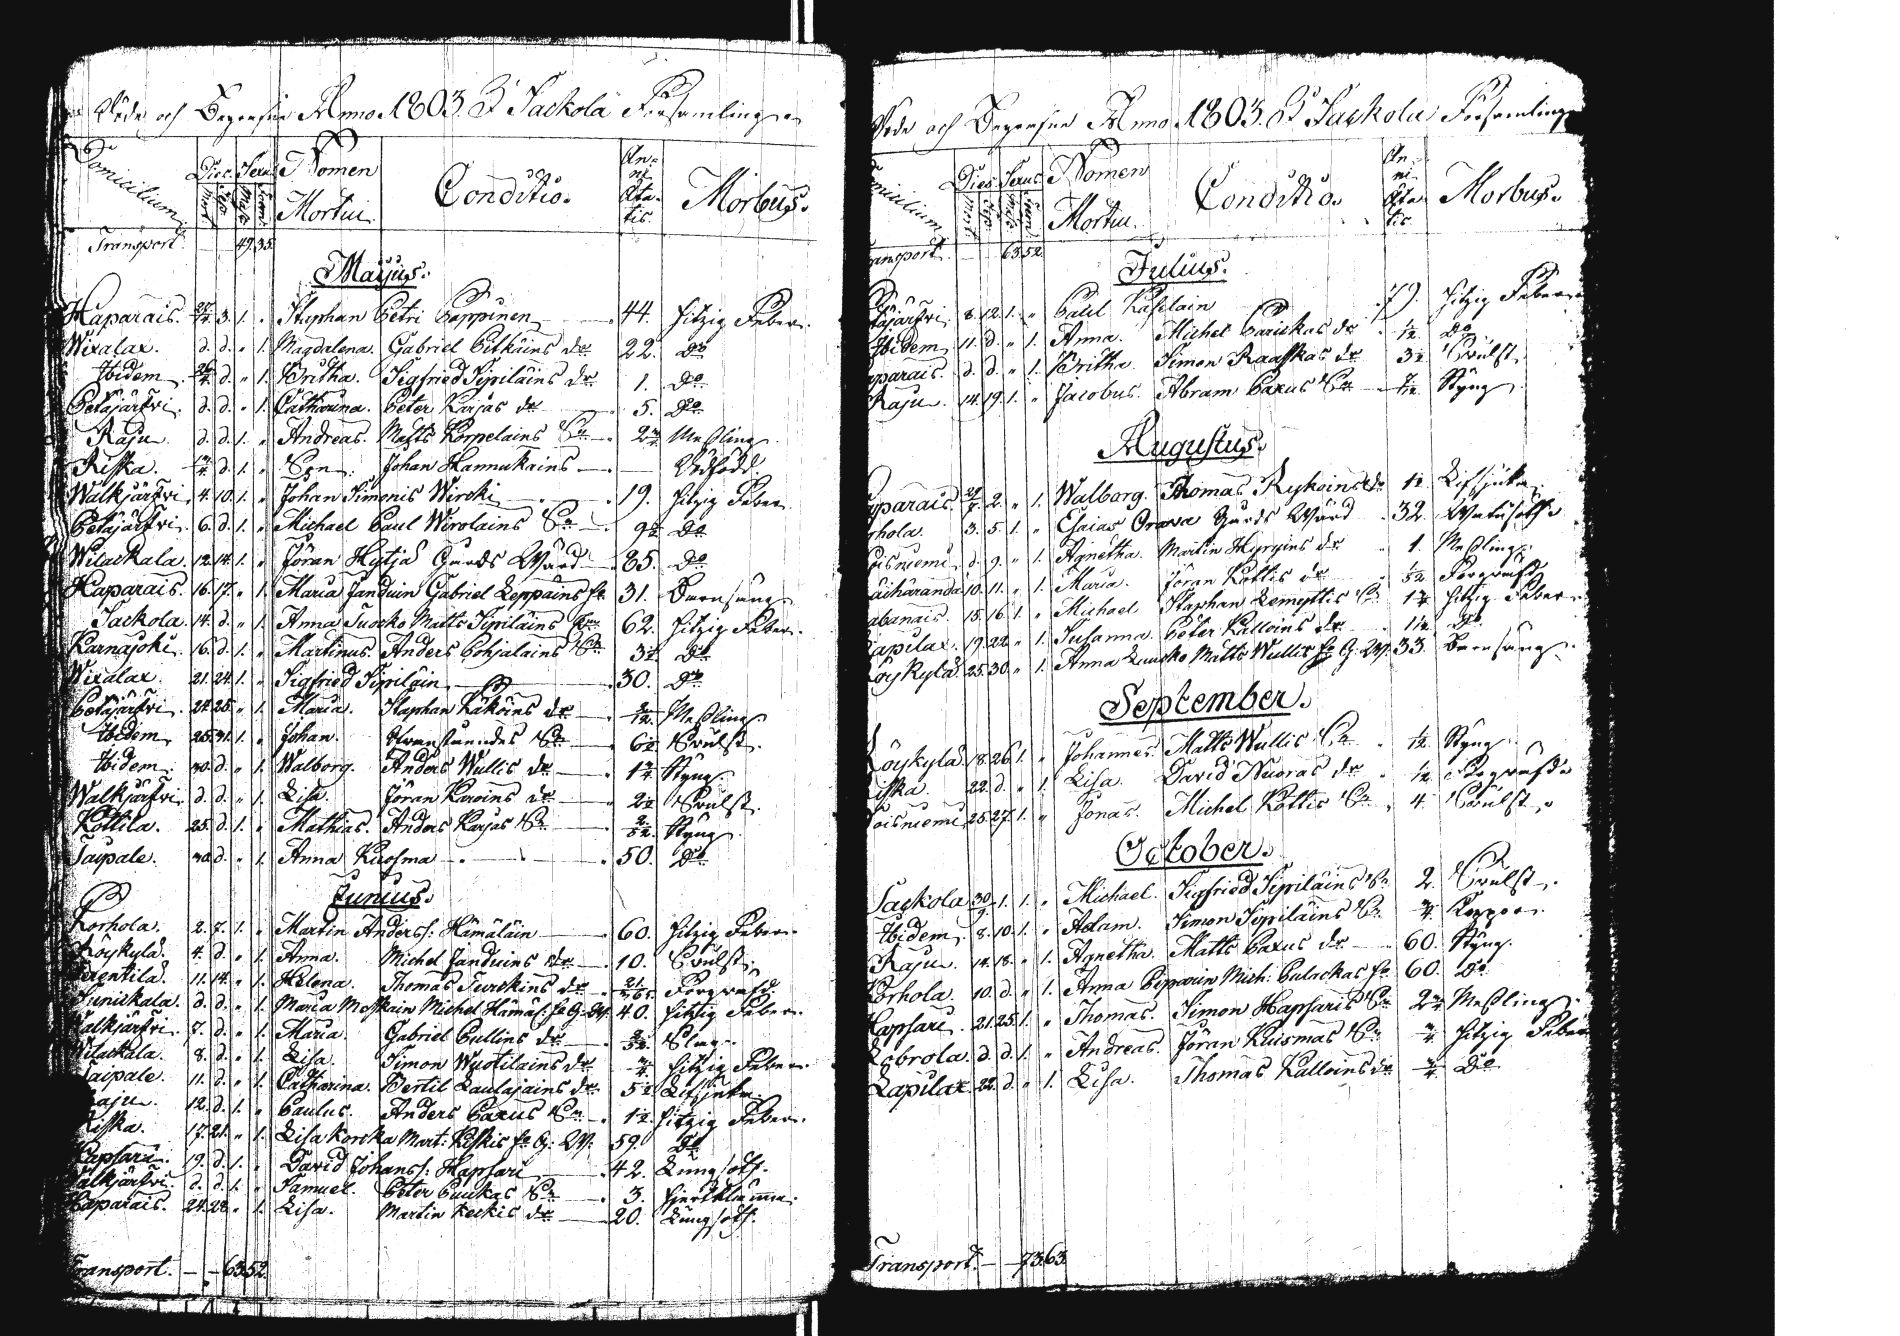 Döde och Begrafne Anno 1803. I Sackola Församling
Domicilium. Dies. Sexus. Nomen Mortui. Conditio. Anni Ætatis. Morbus.
Mort. Sep. Masc. Foem.
Transport — — 49. 35.
Maijus.
Haparais. 27/4. 3. 1. „ Stephan Petri Pappinen 44. hitzig Feber.
Wixalax. d. d. „ 1. Magdalena. Gabriel Pitkäins dr 22. Do
Ibidem. 26/4. d. „ 1. Britha. Sigfried Sipiläins dr 1. Do
Petäjärfvi. d. d. „ 1. Catharina. Peter Karjas dr 5. Do
Raju. d. d. 1. „ Andreas. Matts Korpelains Sn 2 3/4 Meßling.
Riska. d. 1. „ Sen. Johan Hannukains — Dödfödd
Walkjärfvi. 4. 10. 1. „ Johan Simonis Wirski 19. hitzig Feber.
Petäjärfvi. 6. d. 1. „ Michael Paul Wirolains Sn 9 1/2 Do
Wilackala. 12. 14. 1. „ Jöran Hytjä Gårds Wärd 85. Do
Haparais. 16. 17. „ 1. Maria Janduin Gabriel Leppäins h. 31. Barnsäng
Sackola. 14. d. „ 1. Anna Tuocko Matts Sipiläins 62. hitzig Feber.
Karnajoki. 16. d. 1. „ Martinus. Anders Pohjalains Sn 3 1/2 Do
Wixalax. 21. 24. 1. „ Sigfried Sipiläin 30. Do
Petäjärfvi. 24. 25. „ 1. Maria. Staphan Käköins dr 2/12. Meßling.
Ibidem. 25. 31. 1. „ Johan. Sn 6 1/2 Svulst.
Ibidem. 30. d. „ 1. Walborg. Anders Wullis dr 1 3/4 Styng
Walkjärfvi. d. d. „ 1. Lisa. Jöran Karoins dr 2 1/2 Svulst.
Kottila. 25. d. 1. „ Mathias. Anders Karjas Sn 2/52. Styng.
Taipale. 30. d. „ 1. Anna Kuosma 50. Do
Junius.
Korhola. 2. 7. 1. „ Martin Anderss: Hämäläin 60. hitzig Feber.
Röykylä. 4. d. „ 1. Anna. Michel Janduins dr 10. Svulst.
11. 14. „ 1. Helena. Thomas Turckins dr 21/365. Förgrufd
Sunickala. d. d. „ 1. Maria Moskain Michel Hämäl: h. G. W. 40. hitzig Feber.
Walkjärfvi. 7. d. „ 1. Maria. Gabriel Pullins dr 2/52. Slag.
Wilackala. 8. d. „ 1. Lisa. Simon Wuotilains dr 3/4. hitzig Feber.
Taipale. 11. d. „ 1. Catharina. Bertil Laulajains dr 5 1/2 Lifsjuka.
Raju. 12. d. 1. „ Paulus. Anders Paxus Sn 1 1/2 hitzig Feber.
Riska. 17. 21. „ 1. Lisa Korcka Mart: Kiskis h. G. W. 59. Do
Hapsari. 19. d. 1. „ David Johanss: Hapsari 42. Lungsot.
Walkjärfvi. d. d. 1. „ Samuel. Peter Puukas Sn 3. Hjertklämma.
Haparais. 24. 28. „ 1. Lisa. Martin Keckis dr 20. Lungsot.
Transport. — — 63. 52.
Döde och Begrafne Anno 1803. I Sackola Församling
Domicilium. Dies. Sexus. Nomen Mortui. Conditio. Anni Ætatis. Morbus.
Mort. Sep. Masc. Foem.
Transport — — 63. 52.
Julius.
Petäjärfvi. 8. 12. 1. „ Paul Käpelain 79. hitzig Feber.
Ibidem. 11. d. „ 1. Anna. Michel Parickas dr 1/12 Do
Haparais. d. d. „ 1. Britha. Simon Raaskas dr 3 1/2 Svulst
Raju. 14. 19. 1. „ Jacobus. Abram Paxus Sn 7/12 Styng
Augustus.
Haparais. 29/7. 2. „ 1. Walborg. Thomas Ryköins dr 1 1/2 Lifsjuka.
Korhola. 3. 5. 1. „ Esaias Orava Gårds Wärd 32. Watusot.
Woisniemi. d. 9. „ 1. Agnetha. Martin Hyrgins dr 1. Meßling.
10. 11. „ 1. Maria. Jöran Kottis dr 1/52 Förgrufd.
15. 16. 1. „ Michael Staphan Lemettis Sn 1 3/4 hitzig Feber.
Lapilax. 19. 22. „ 1. Susanna. Peter Kalloins dr 1 1/2 Do
Röykylä. 25. 30. „ 1. Anna Luucko Matts Wullis h. G. W. 33. Barnsäng.
September.
Röykylä. 18. 26. 1. „ Johannes. Matts Wullis Sn 1/12 Styng
Riska. 22. d. „ 1. Lisa. David Nuoras dr 1/12 Förgrufd.
Woisniemi. 25. 27. 1. „ Jonas. Michel Kottis Sn 4. Svulst.
October.
Sackola. 30/9. 1. 1. „ Michael. Sigfried Sipiläins Sn 2. Svulst.
Ibidem. 8. 10. 1. „ Adam. Simon Sipiläins Sn 3/4. Koppor.
Raju. 14. 18. „ 1. Agnetha. Matts Paxus dr 60. Styng.
Korhola. 10. d. „ 1. Anna Peparin Mich: Pulackas h. 60. Do
Hapsari. 21. 25. 1. „ Thomas. Simon Hapsaris Sn 2 3/4 Meßling.
Lobrola. d. d. 1. „ Andreas. Jöran Kuismas Sn 3/4. hitzig Feber
Lapilax. 22. d. „ 1. Lisa. Thomas Kalloins dr 3/4. Do
Transport. — — 73. 63.